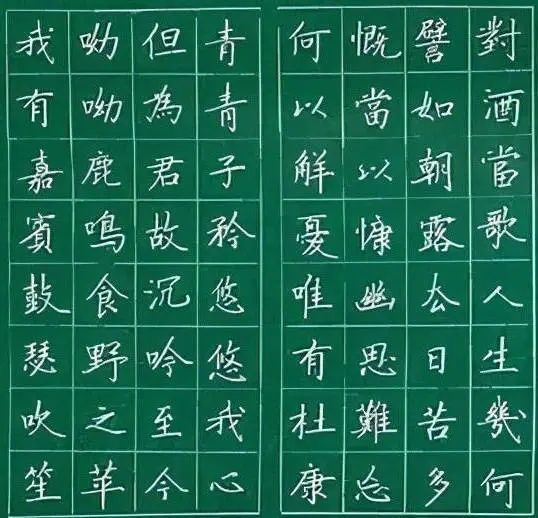 對酒當歌人生幾何
譬如朝露去日苦多
慨當以慷幽思難忘
何以解憂唯有杜康
青青子衿悠悠我心
但為君故沉吟至今
呦呦鹿鳴食野之苹
我有嘉賓鼓瑟吹笙